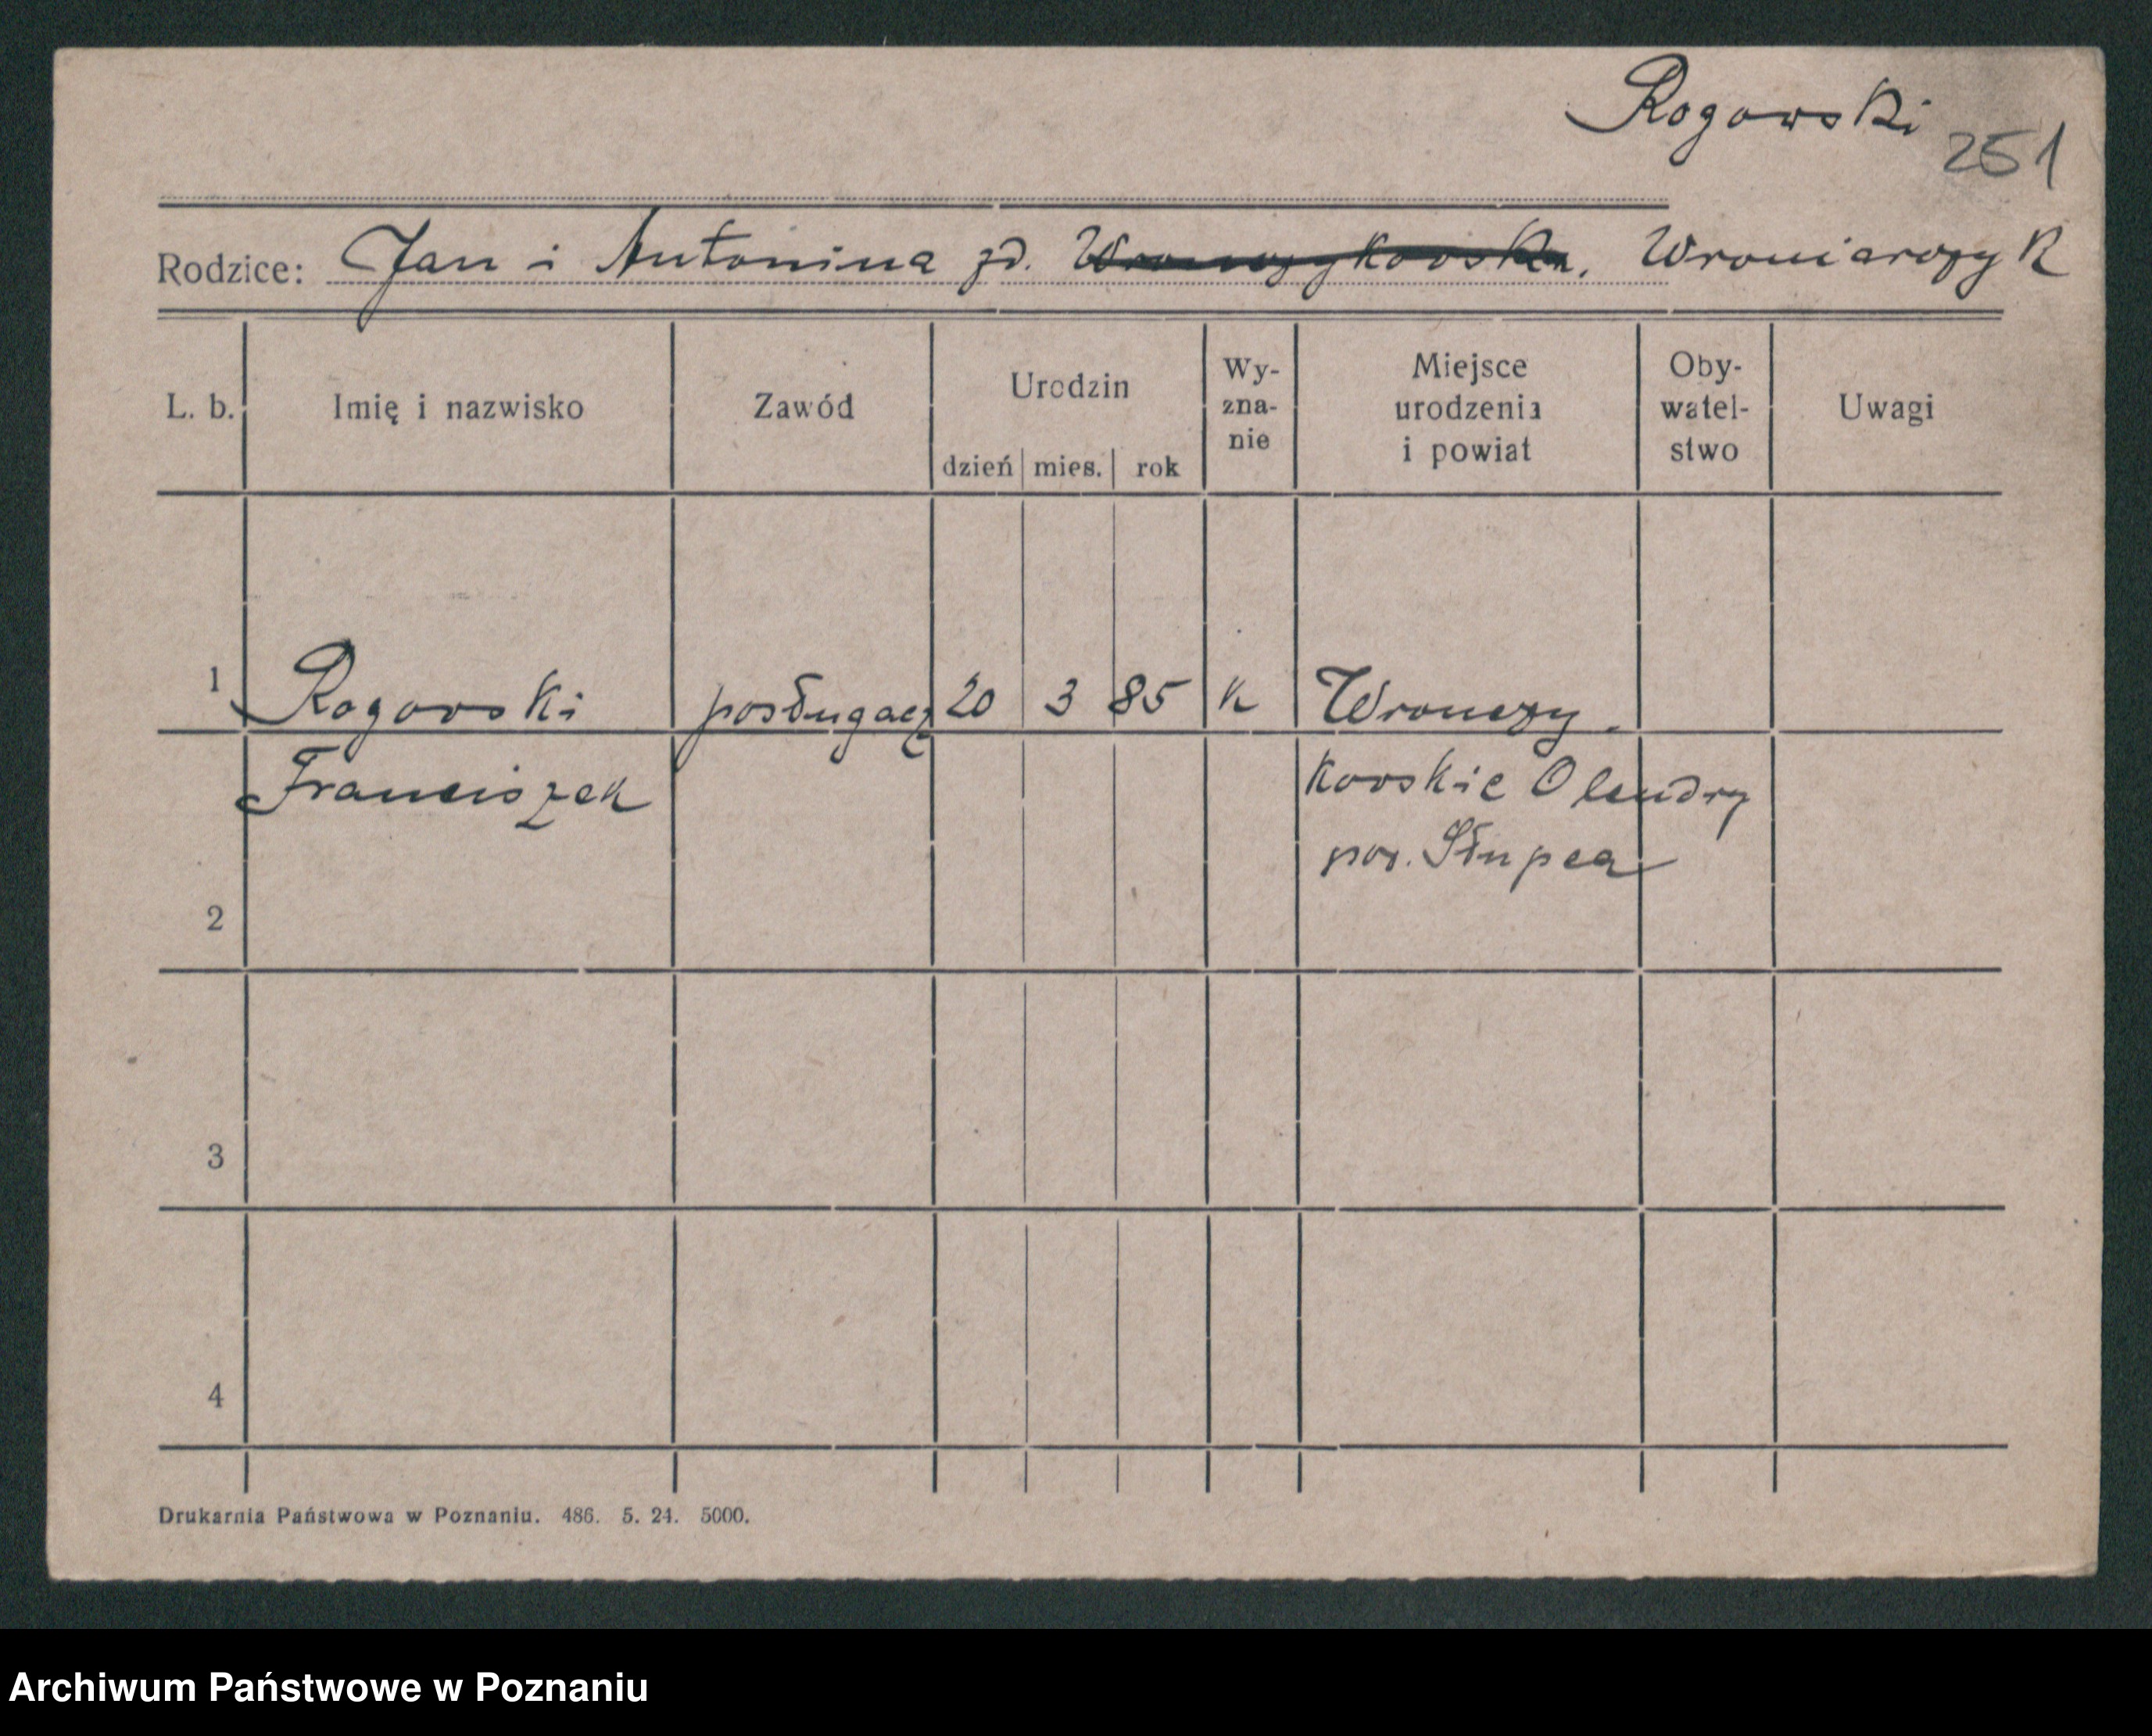 Rogowski
251
Rodzice: Jan i Antonina zd. Wronczykowska. Wroniarczyk
L. b. Imię i nazwisko Zawód Urodzin dzień mies. rok Wy-zna-nie Miejsce urodzenia i powiat Oby-watel-stwo Uwagi
1 Rogowski posługacz 20 3 85 k Wronczy-
Franciszek kowskie Olendry
pow. Słupca
2
3
4
Drukarnia Państwowa w Poznaniu. 486. 5. 24. 5000.
Archiwum Państwowe w Poznaniu